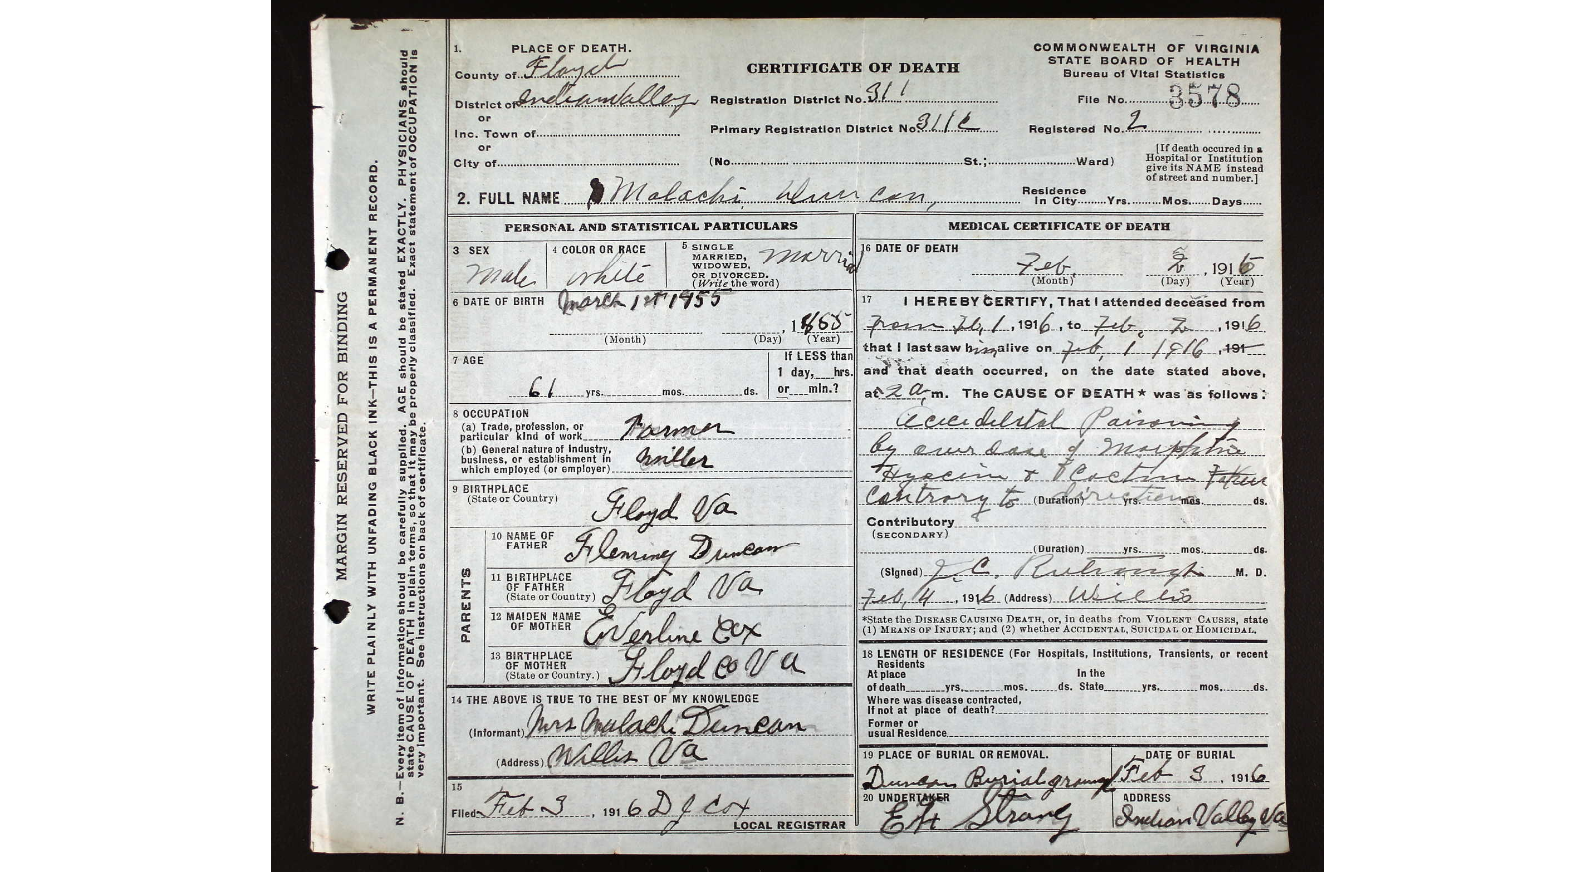 MARGIN RESERVED FOR BINDING
WRITE PLAINLY WITH UNFADING BLACK INK—THIS IS A PERMANENT RECORD.
N. B.—Every item of information should be carefully supplied. AGE should be stated EXACTLY. PHYSICIANS should
state CAUSE OF DEATH in plain terms, so that it may be properly classified. Exact statement of OCCUPATION is
very important. See instructions on back of certificate.
1. PLACE OF DEATH.
County of Floyd
District of Indian Valley
or
Inc. Town of
or
City of
CERTIFICATE OF DEATH
Registration District No. 311
Primary Registration District No. 311C
(No. St.; Ward)
COMMONWEALTH OF VIRGINIA
STATE BOARD OF HEALTH
Bureau of Vital Statistics
File No. 3578
Registered No. 2
[If death occured in a
Hospital or Institution
give its NAME instead
of street and number.]
2. FULL NAME Malachi Duncan,
Residence
In City Yrs. Mos. Days
PERSONAL AND STATISTICAL PARTICULARS
3 SEX
Male
4 COLOR OR RACE
White
5 SINGLE
MARRIED,
WIDOWED,
OR DIVORCED.
(Write the word)
Married
6 DATE OF BIRTH March 1st 1955
, 1855
(Month) (Day) (Year)
7 AGE
61 yrs. mos. ds.
If LESS than
1 day, hrs.
or min.?
8 OCCUPATION
(a) Trade, profession, or
particular kind of work Farmer
(b) General nature of industry,
business, or establishment in
which employed (or employer) Miller
9 BIRTHPLACE
(State or Country)
Floyd Va
PARENTS
10 NAME OF
FATHER
Fleming Duncan
11 BIRTHPLACE
OF FATHER
(State or Country) Floyd Va
12 MAIDEN NAME
OF MOTHER
Everline Cox
13 BIRTHPLACE
OF MOTHER
(State or Country.) Floyd Co Va
14 THE ABOVE IS TRUE TO THE BEST OF MY KNOWLEDGE
(Informant) Mrs Malachi Duncan
(Address) Willis Va
15
Filed Feb 3, 1916 D J Cox
LOCAL REGISTRAR
MEDICAL CERTIFICATE OF DEATH
16 DATE OF DEATH
Feb. 2, 1916
(Month) (Day) (Year)
17 I HEREBY CERTIFY, That I attended deceased from
from Feb, 1, 1916, to Feb. 2, 1916
that I last saw him alive on Feb, 1 1916, 191
and that death occurred, on the date stated above,
at 2 a, m. The CAUSE OF DEATH* was as follows:
Accidental Poisoning
by over dose of Morphine
Hyoscin & Cactin Taken
contrary to directions
(Duration) yrs. mos. ds.
Contributory
(SECONDARY)
(Duration) yrs. mos. ds.
(Signed) J. C. M. D.
Feb, 4, 1916 (Address) Willis
*State the DISEASE CAUSING DEATH, or, in deaths from VIOLENT CAUSES, state
(1) MEANS OF INJURY; and (2) whether ACCIDENTAL, SUICIDAL or HOMICIDAL.
18 LENGTH OF RESIDENCE (For Hospitals, Institutions, Transients, or recent
Residents
At place In the
of death yrs. mos. ds. State yrs. mos. ds.
Where was disease contracted,
If not at place of death?
Former or
usual Residence
19 PLACE OF BURIAL OR REMOVAL.
Duncan Burial ground
DATE OF BURIAL
Feb 3, 1916
20 UNDERTAKER
EH Strong
ADDRESS
Indian Valley Va